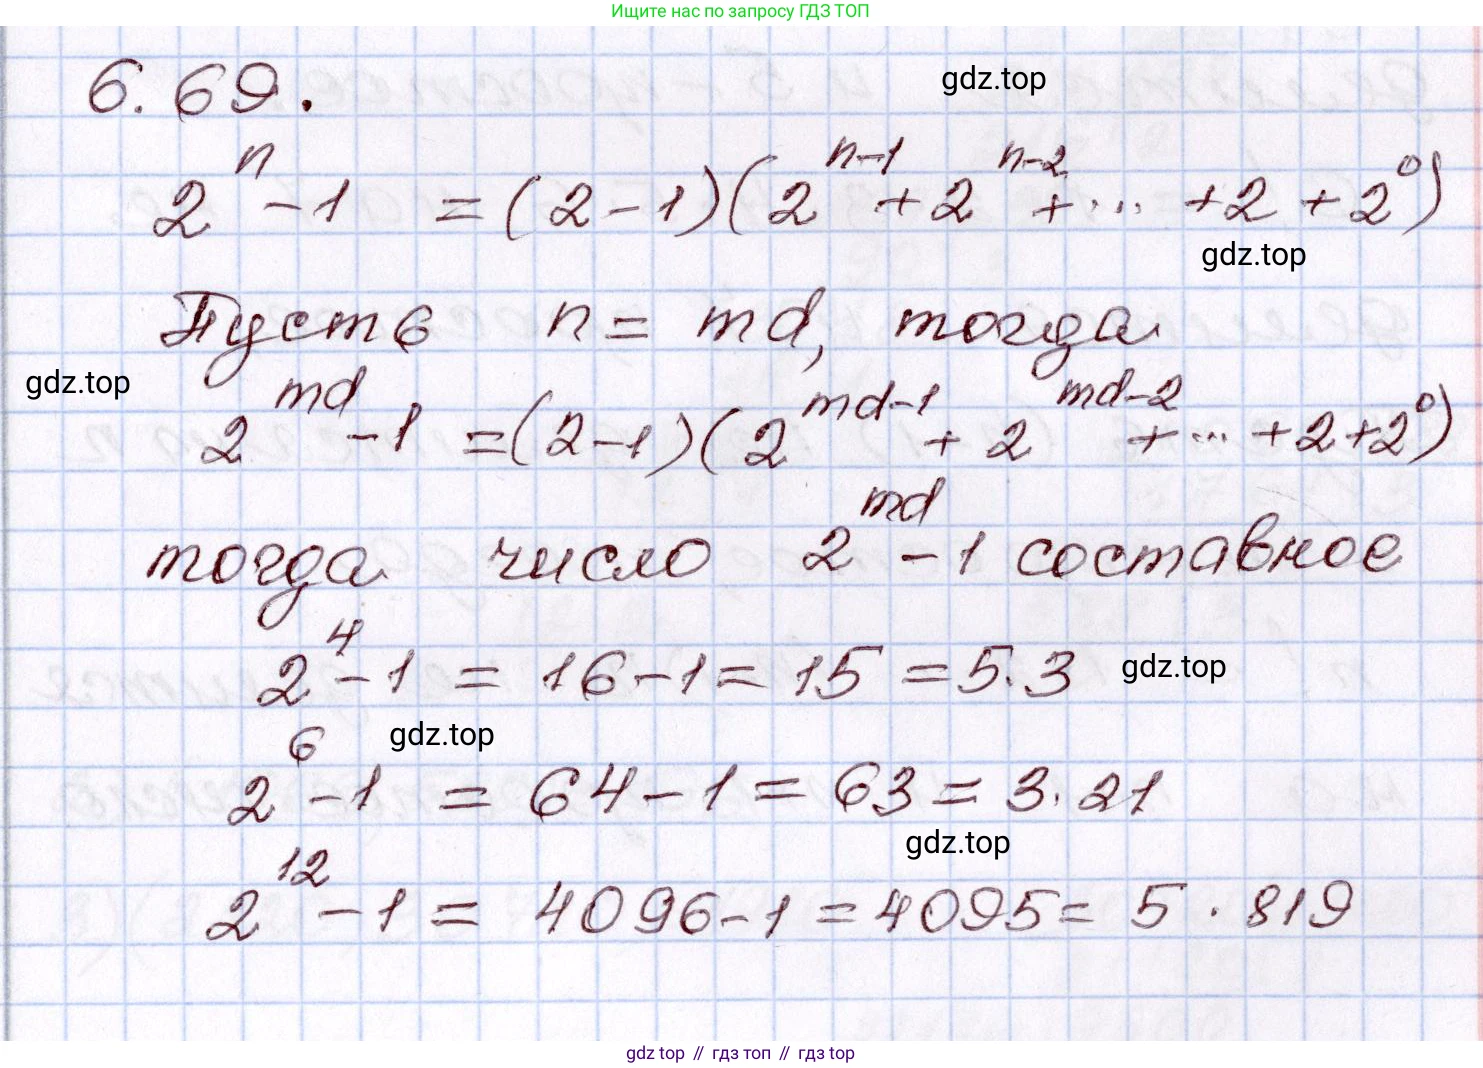 Ищите нас по запросу ГДЗ ТОП
6.69.
gdz.top
2^n - 1 = (2-1)(2^{n-1} + 2^{n-2} + ... + 2 + 2^0)
gdz.top
Пусть n = md, тогда
gdz.top
2^{md} - 1 = (2-1)(2^{md-1} + 2^{md-2} + ... + 2 + 2^0)
тогда число 2^{md} - 1 составное
2^4 - 1 = 16 - 1 = 15 = 5·3
gdz.top
gdz.top
2^6 - 1 = 64 - 1 = 63 = 3·21
gdz.top
2^{12} - 1 = 4096 - 1 = 4095 = 5·819
gdz top // гдз топ // gdz.top